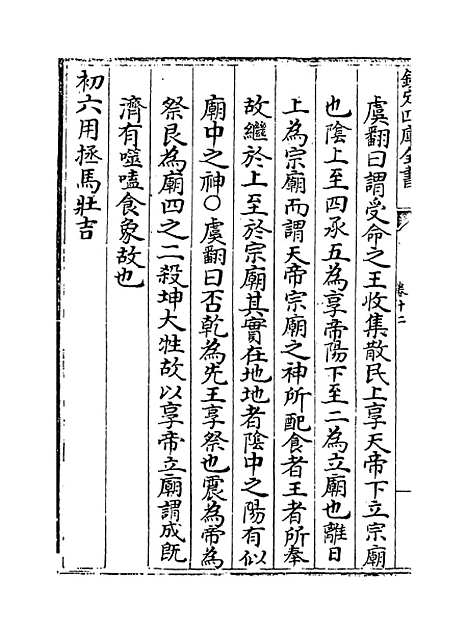 欽定四庫全書
卷十二
虞翻曰謂受命之王收集散民上享天帝下立宗廟
也陰上至四承五為享帝陽下至二為立廟也離日
上為宗廟而謂天帝宗廟之神所配食者王者所奉
故繼於上至於宗廟其實在地地者陰中之陽有似
廟中之神○虞翻曰否乾為先王享祭也震為帝為
祭艮為廟四之二殺坤大牲故以享帝立廟謂成既
濟有噬嗑食象故也
初六用拯馬壯吉